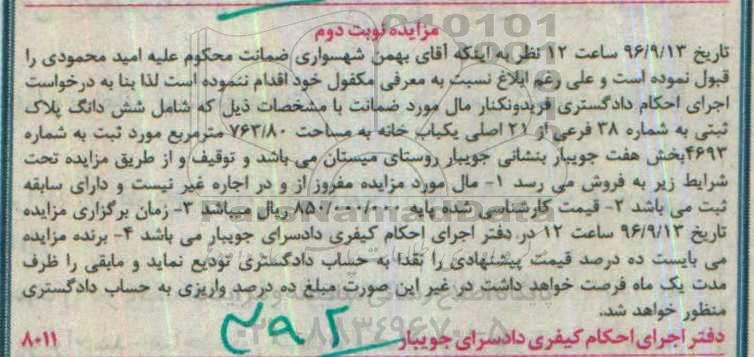 مزایده نوبت دوم
تاریخ ۹۶/۹/۱۳ ساعت ۱۲ نظر به اینکه آقای بهمن شهسواری ضمانت محکوم علیه امید محمودی را
قبول نموده است و علی رغم ابلاغ نسبت به معرفی مکفول خود اقدام ننموده است لذا بنا به درخواست
اجرای احکام دادگستری فریدونکنار مال مورد ضمانت با مشخصات ذیل که شامل شش دانگ پلاک
ثبتی به شماره ۳۸ فرعی از ۲۱ اصلی یکباب خانه به مساحت ۷۶۳/۸۰ مترمربع مورد ثبت به شماره
۴۶۹۳بخش هفت جویبار بنشانی جویبار روستای میستان می باشد و توقیف و از طریق مزایده تحت
شرایط زیر به فروش می رسد ۱- مال مورد مزایده مفروز از و در اجاره غیر نیست و دارای سابقه
ثبت می باشد ۲- قیمت کارشناسی شده پایه ۸۵۰/۰۰۰/۰۰۰ ریال میباشد ۳- زمان برگزاری مزایده
تاریخ ۹۶/۹/۱۳ ساعت ۱۲ در دفتر اجرای احکام کیفری دادسرای جویبار می باشد ۴- برنده مزایده
می بایست ده درصد قیمت پیشنهادی را نقدا به حساب دادگستری تودیع نماید و مابقی را ظرف
مدت یک ماه فرصت خواهد داشت در غیر این صورت مبلغ ده درصد واریزی به حساب دادگستری
منظور خواهد شد.
دفتر اجرای احکام کیفری دادسرای جویبار
۸۰۱۱